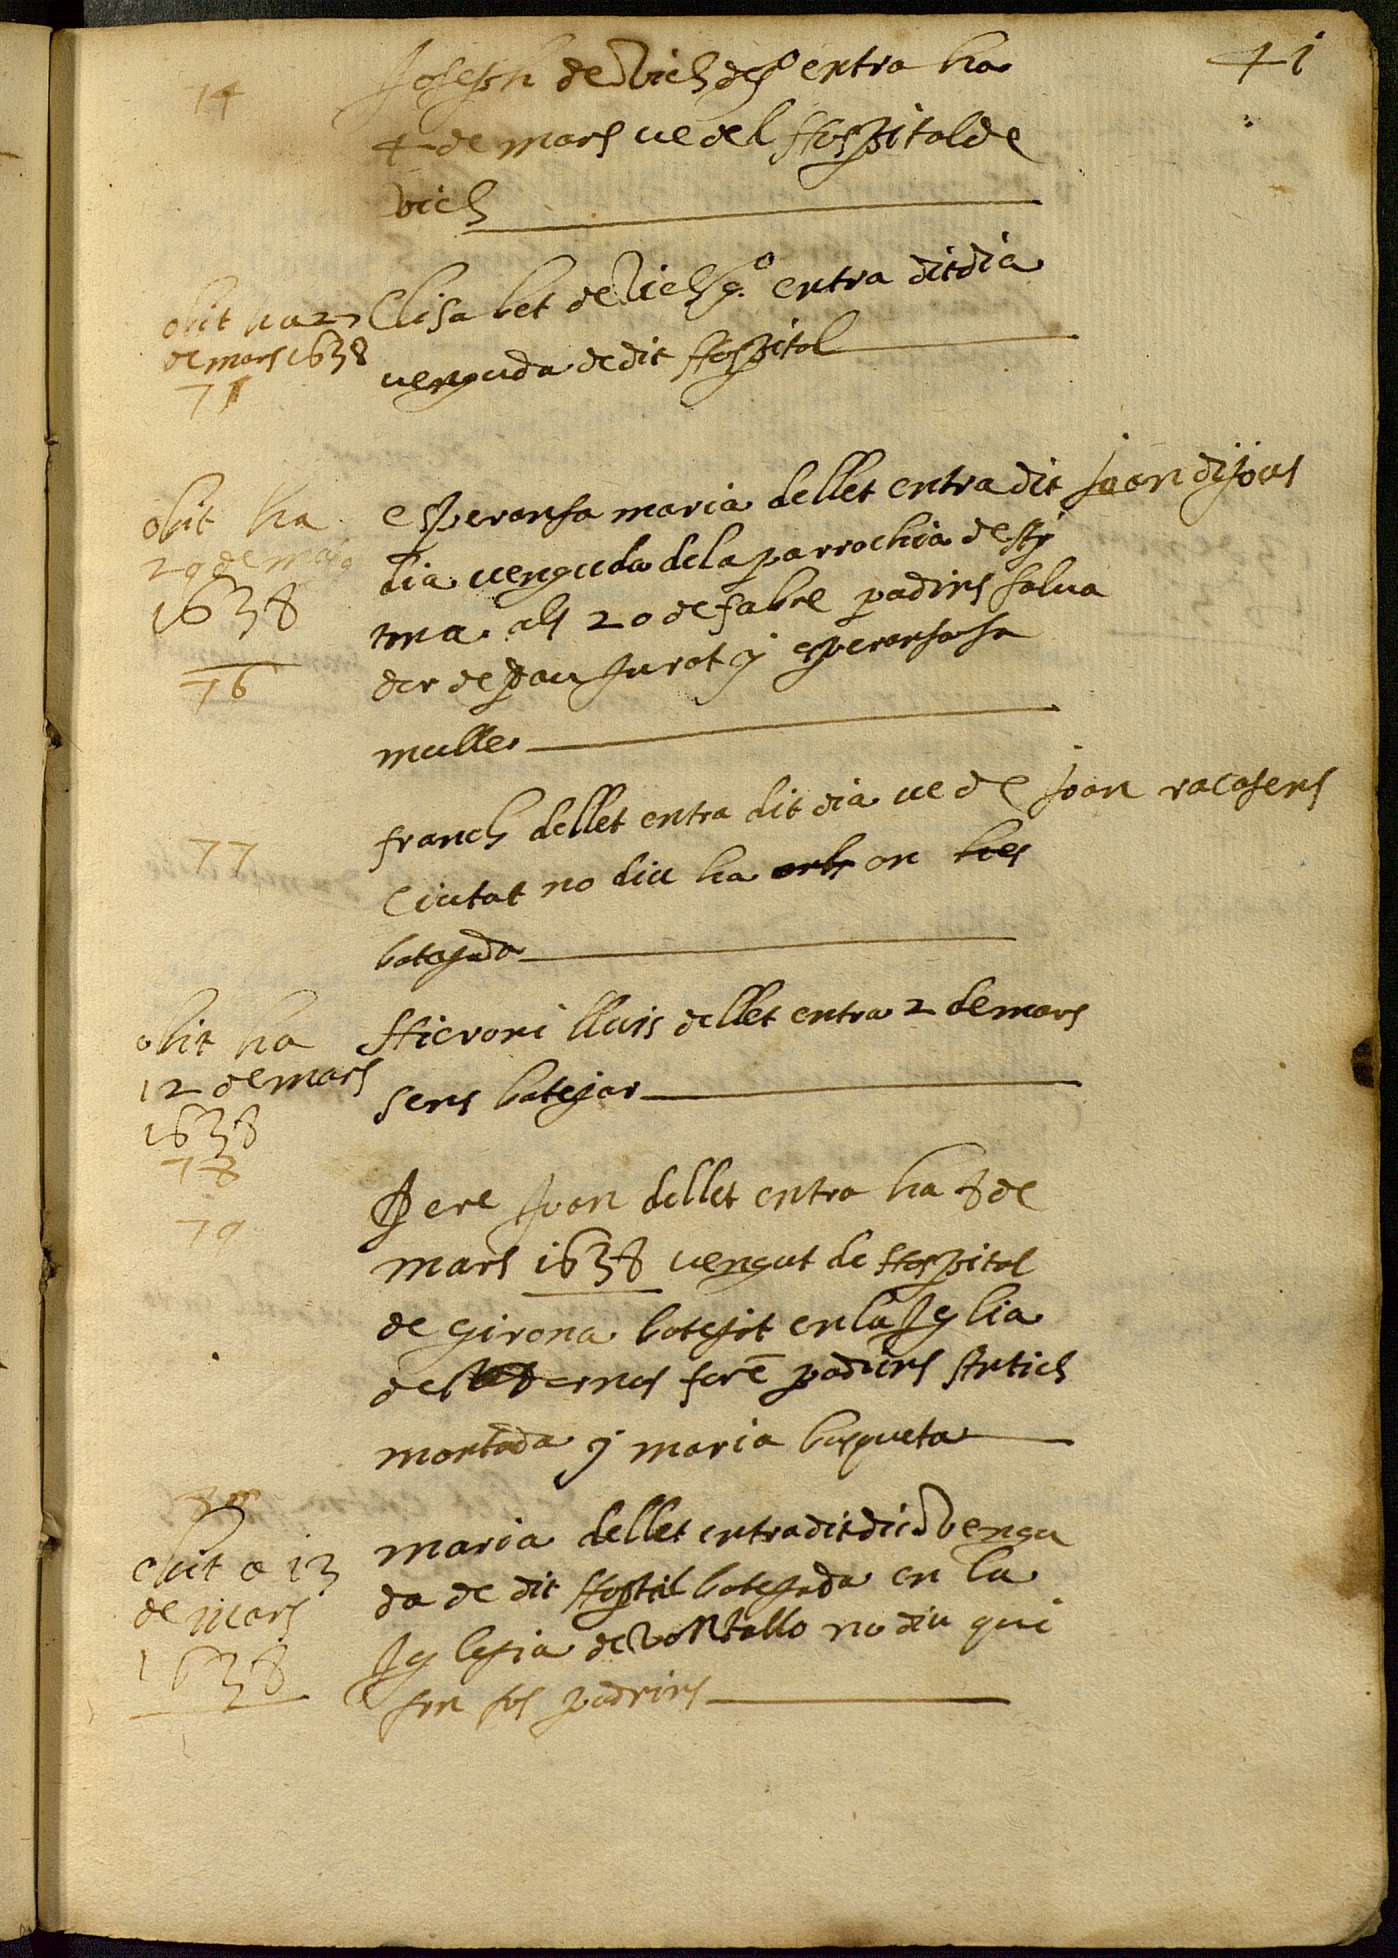 41
74
Joseph de Vich deso entra ha
4 de mars ve del Hospital de
vich
obit ha 27
de mars 1638
71
Elisabet de Vich go entra dit dia
venguda de dit Hospital
obit ha
29 de mars
1638
76
esperansa maria dellet entra dit Joan dijous
dia venguda de la parrochia de
als 20 de fabre padins salva
dor de pau Jurat y esperansa sa
muller
77
franch dellet entra dit dia ve de Joan racasens
Ciutat no diu ha on
batejada
obit ha
12 de mars
1638
78
Hieroni lluis dellet entra 2 de mars
sens batejar
79
Pere Juan dellet entra ha 8 de
mars 1638 vengut de Hospital
de girona batejat en la Iglia
de foré padrins Antich
mortada y maria busqueta
80
obit a 13
de mars
1638
maria dellet entra dit dia Vengu
da de dit Hospital batejada en la
Iglesia de no diu qui
son sos padrins